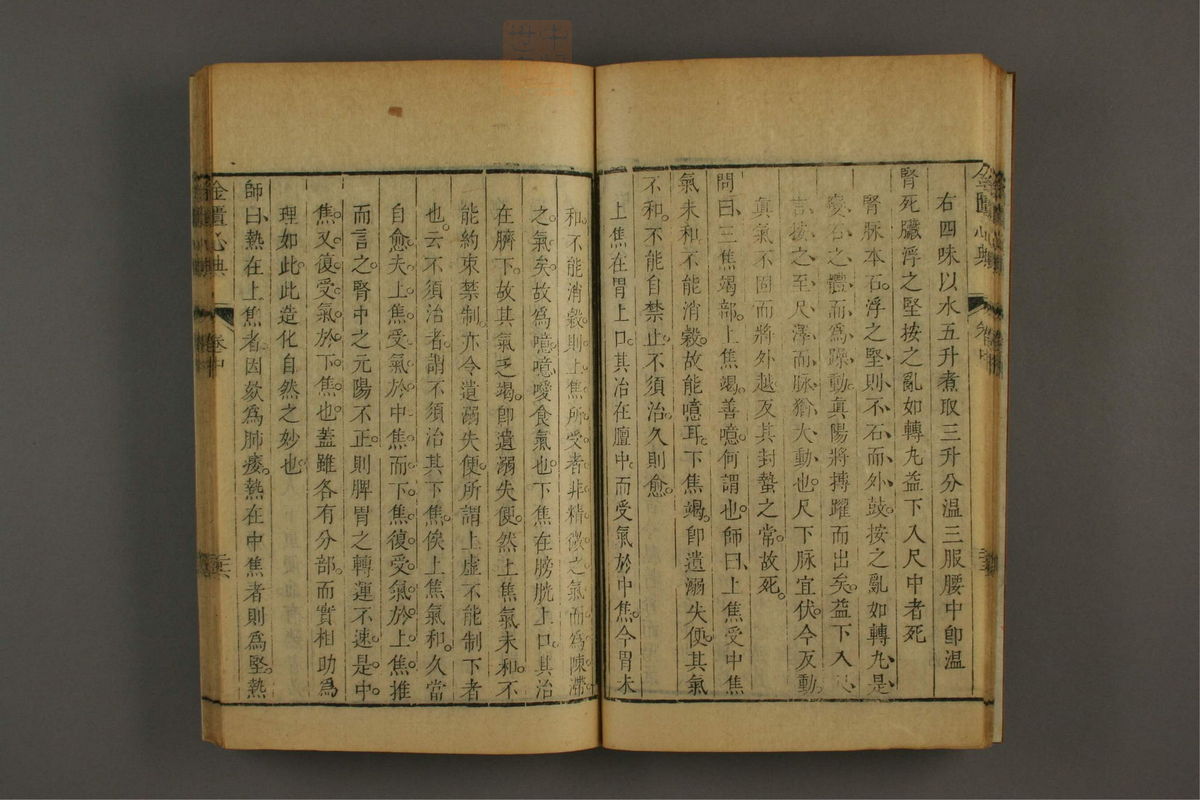 右四味以水五升煮取三升分温三服腰中卽温
腎死臟浮之堅按之亂如轉丸益下入尺中者死
腎脉本石。浮之堅、則不石而外鼓。按之亂如轉丸、是
變石之體、而爲躁動。眞陽將搏躍而出矣。益下入尺
言按之至尺澤而脉猶大動也。尺下脉宜伏。今反動
眞氣不固而將外越反其封蟄之常。故死。
問曰、三焦竭部。上焦竭善噫。何謂也。師曰、上焦受中焦
氣未和不能消穀。故能噫耳。下焦竭。卽遺溺失便。其氣
不和。不能自禁止。不須治。久則愈。
上焦在胃上口。其治在膻中。而受氣於中焦。今胃未
和。不能消穀。則上焦所受者。非精微之氣。而爲陳滯
之氣矣。故爲噫。噫噯食氣也。下焦在膀胱上口。其治
在臍下。故其氣乏竭。卽遺溺失便。然上焦氣未和。不
能約束禁制。亦令遺溺失便。所謂上虛不能制下者
也。云不須治者。謂不須治其下焦。俟上焦氣和。久當
自愈。夫上焦受氣於中焦。而下焦復受氣於上焦。推
而言之。腎中之元陽不正。則脾胃之轉運不速。是中
焦。又復受氣於下焦也。蓋雖各有分部。而實相助爲
理如此。此造化自然之妙也。
師曰、熱在上焦者因欬爲肺痿。熱在中焦者則爲堅。熱
金匱心典
卷中
金匱心典
卷中